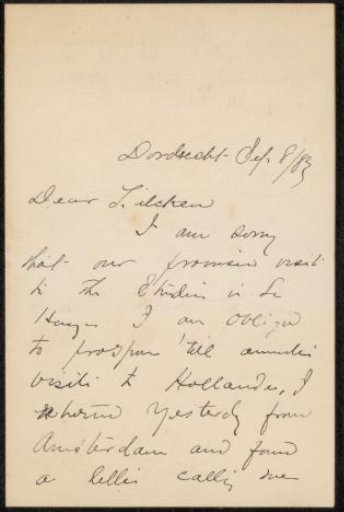 Dordrecht Sep. 8/83
Dear Zilcken
I am sorry
that our promised visit
to the Studios in La
Hague I am obliged
to prospon 'till annother
visit to Hollande, I
returned yesterdy from
Amsterdam and found
a letter calling me